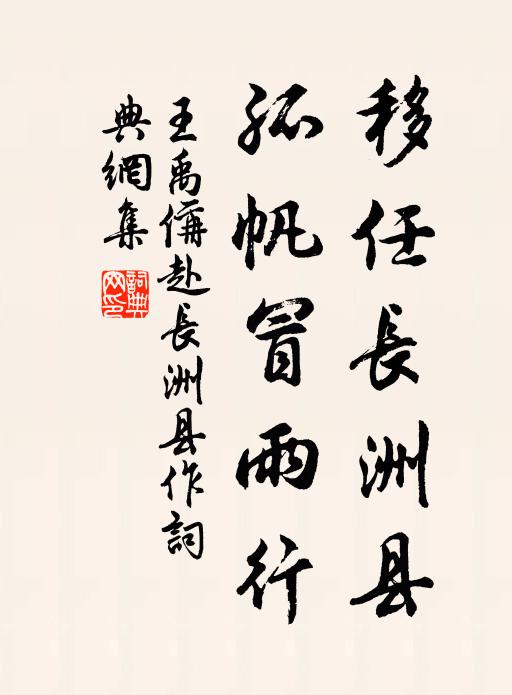 移任長洲县
孤帆冒雨行
王禹偁赴長洲县作詞
典網集
詞典网印